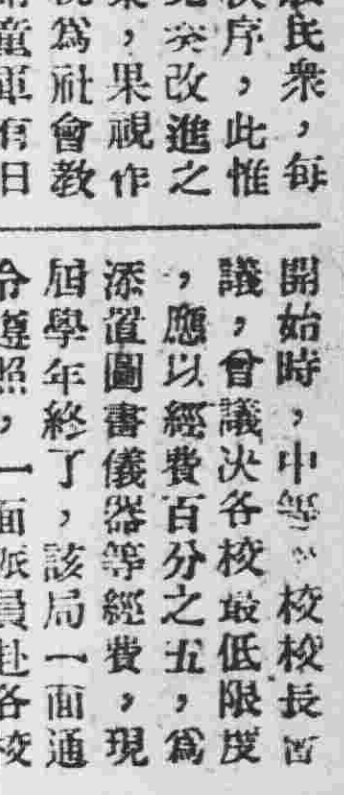 民衆，每
序，此惟
改進之
，果視作
為社會教
童軍有日
開始時，中等校校長會
議，會議決各校最低限度
，應以經費百分之五，為
添置圖書儀器等經費，現
屆學年終了，該局一面通
令遵照，一面派員赴各校